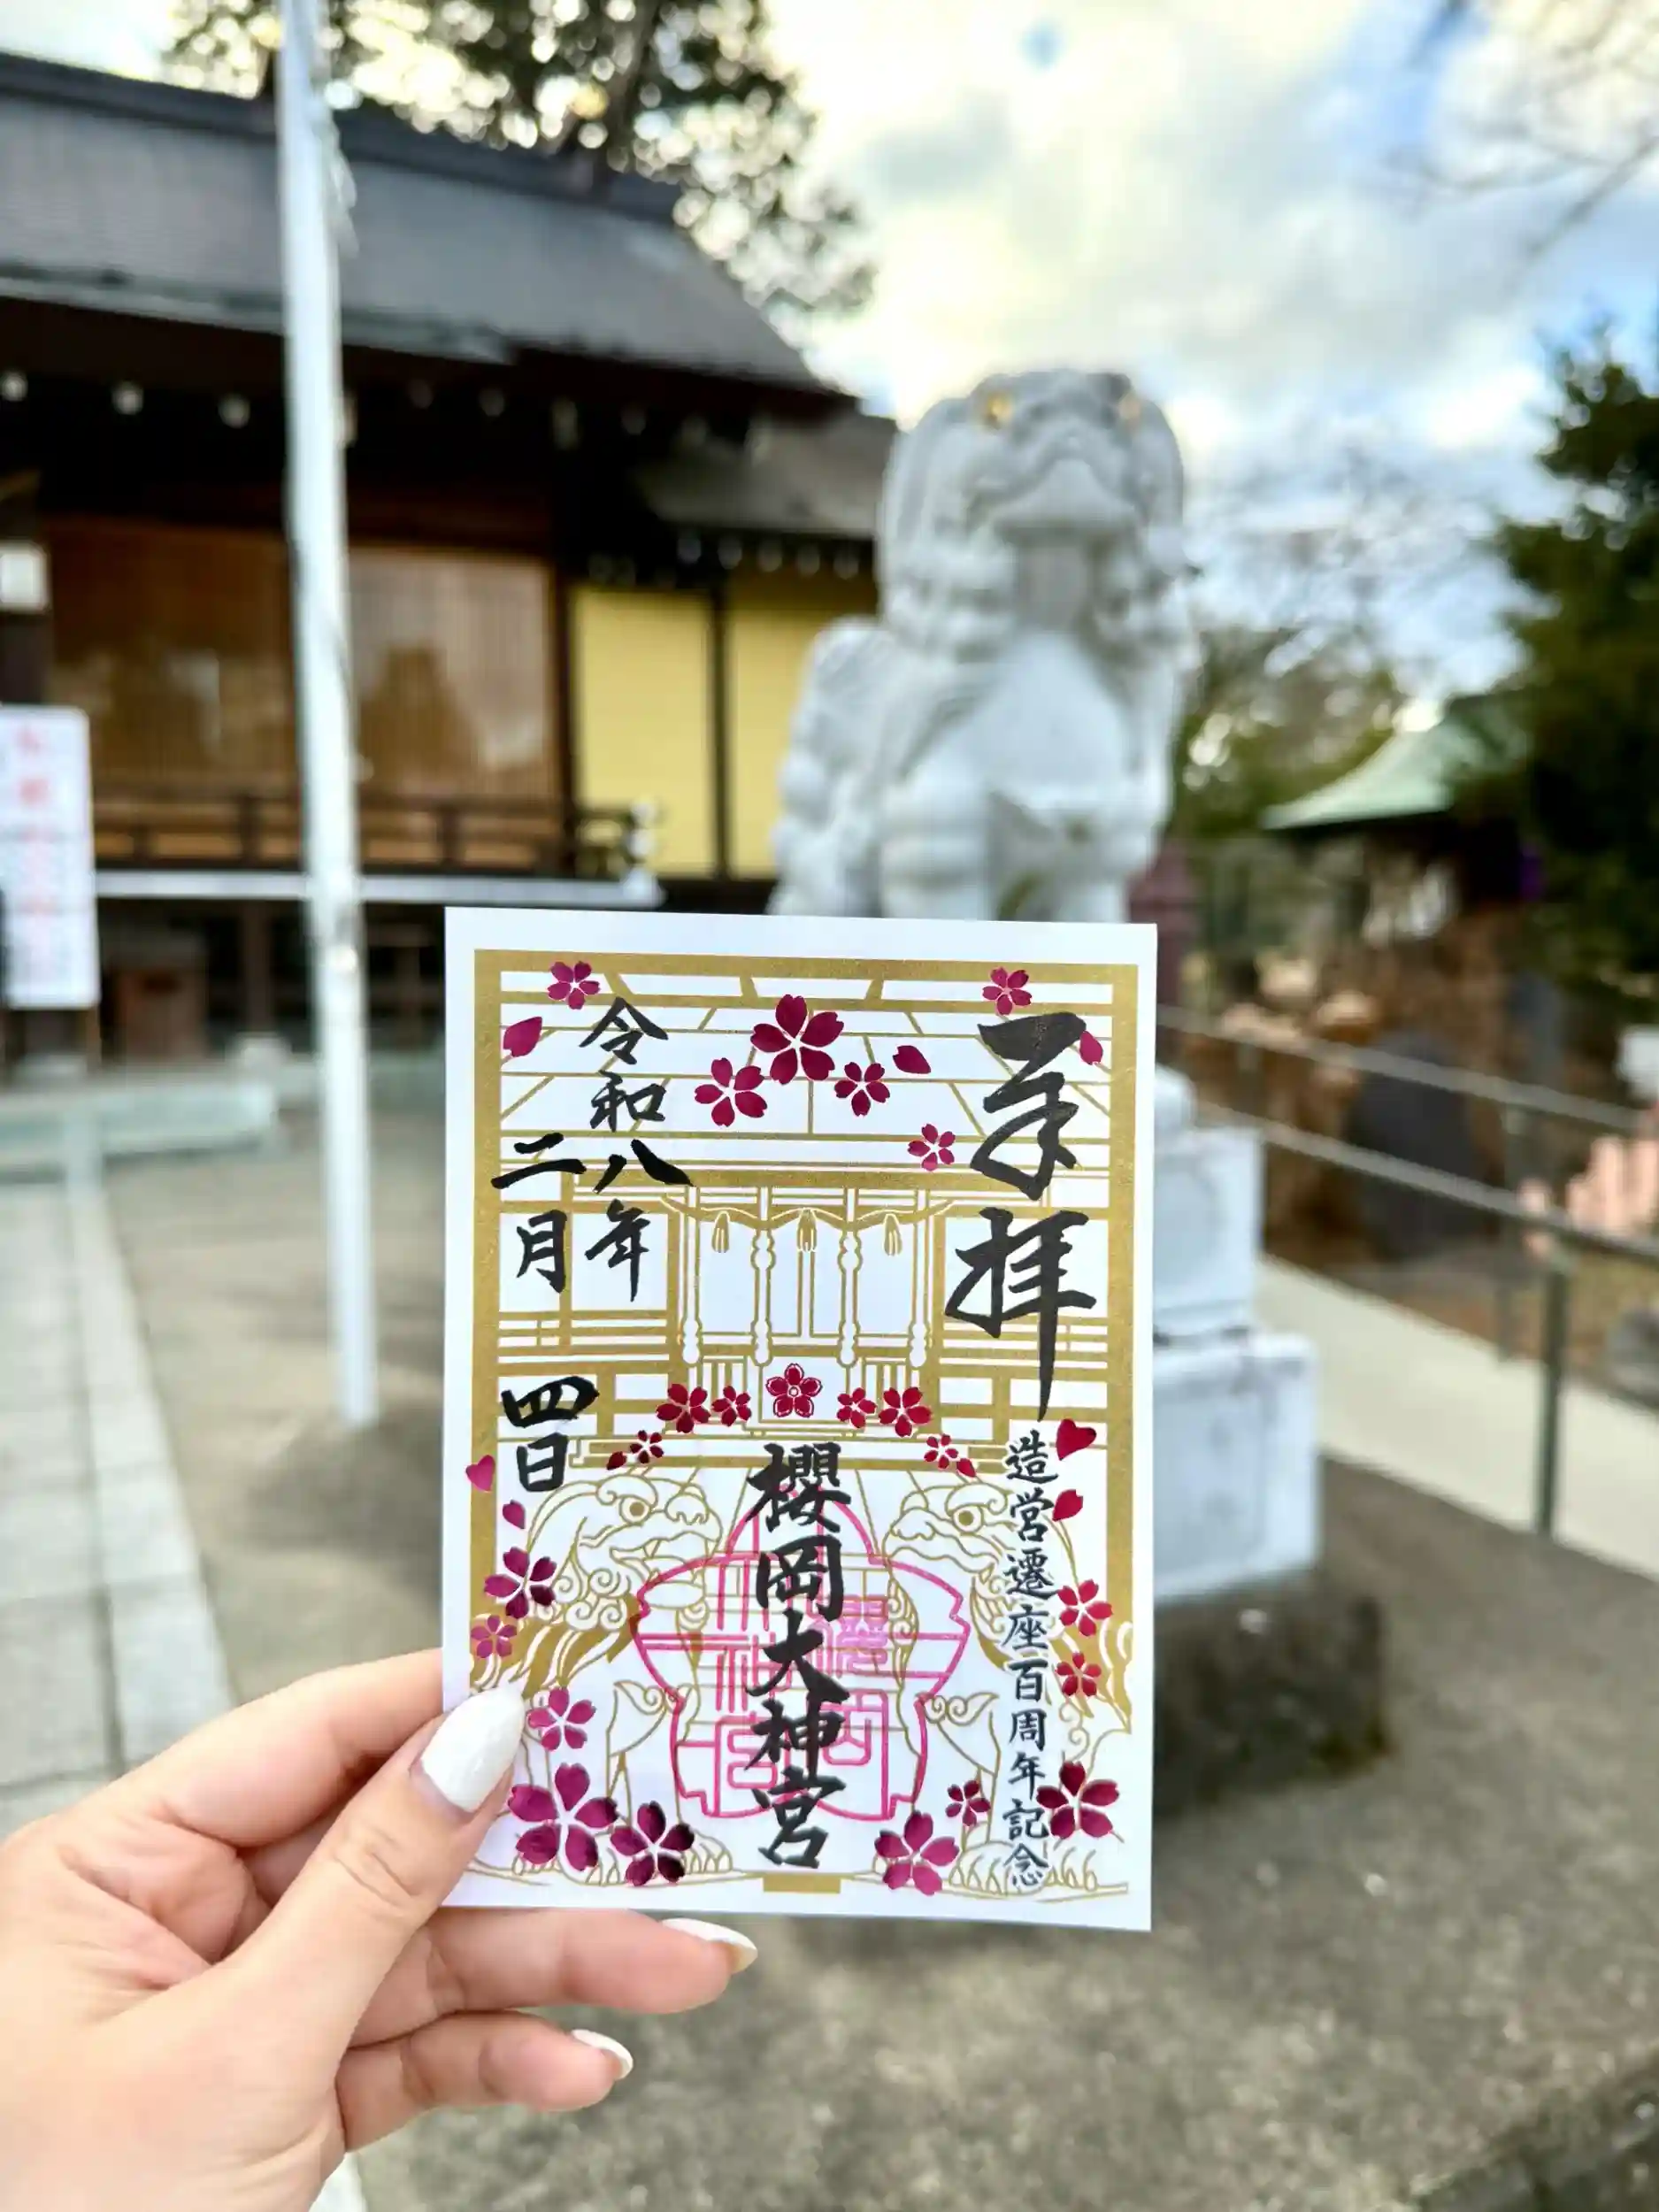 奉拝
造営遷座百周年記念
櫻岡大神宮
令和八年
二月
四日